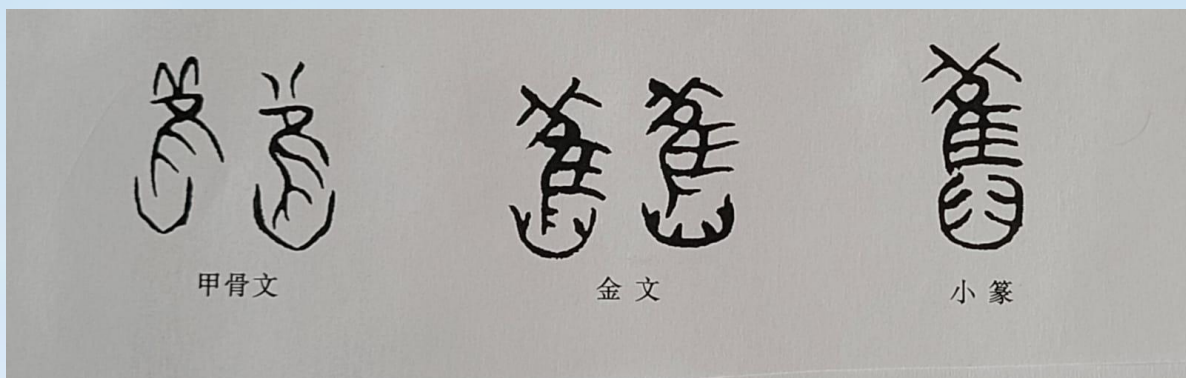 甲骨文 金文 小篆